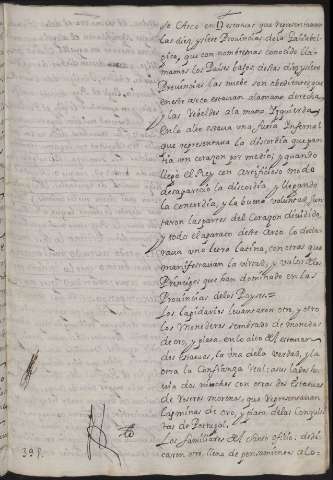 so Arco en 17 estatuas que representauan
las diez y siete Prouincias de la Galia bel-
gica, que con nombre mas conocido lla-
mamos los Paises bajos destas diez y siete
Prouincias las nueue son obedientes que
en este arco estauan a la mano derecha
y las Rebeldes a la mano Yzquierda
en lo alto estaua una furia Infernal
que representaua la discordia que par-
tia un corazon por medio; y quando
llegò el Rey con artificioso modo
desaparecio la discordia y llegando
la concordia, y la buena voluntad jun-
taron las partes del Corazon diuidido,
y todo el aparato deste Arco lo decla-
raua una letra latina, con otras que
manifestauan la virtud, y valor de los
Principes que han dominado en las
Prouincias de los Payses=
Los lapidarios leuantaron otro, y otro
los Monederos sembrado de monedas
de oro, y plata, en lo alto del estauan
dos Estatuas, la una de la verdad, y la
otra la Confianza Real; a los lados
dos nichos con otras dos Estatuas
de Reyes morenos, que representauan
las minas de oro, y plata de las Conquis-
tas de Portugal.
Los familiares del Santo ofiçio, dedi-
caron otro, lleno de pensamientos a lo
391.